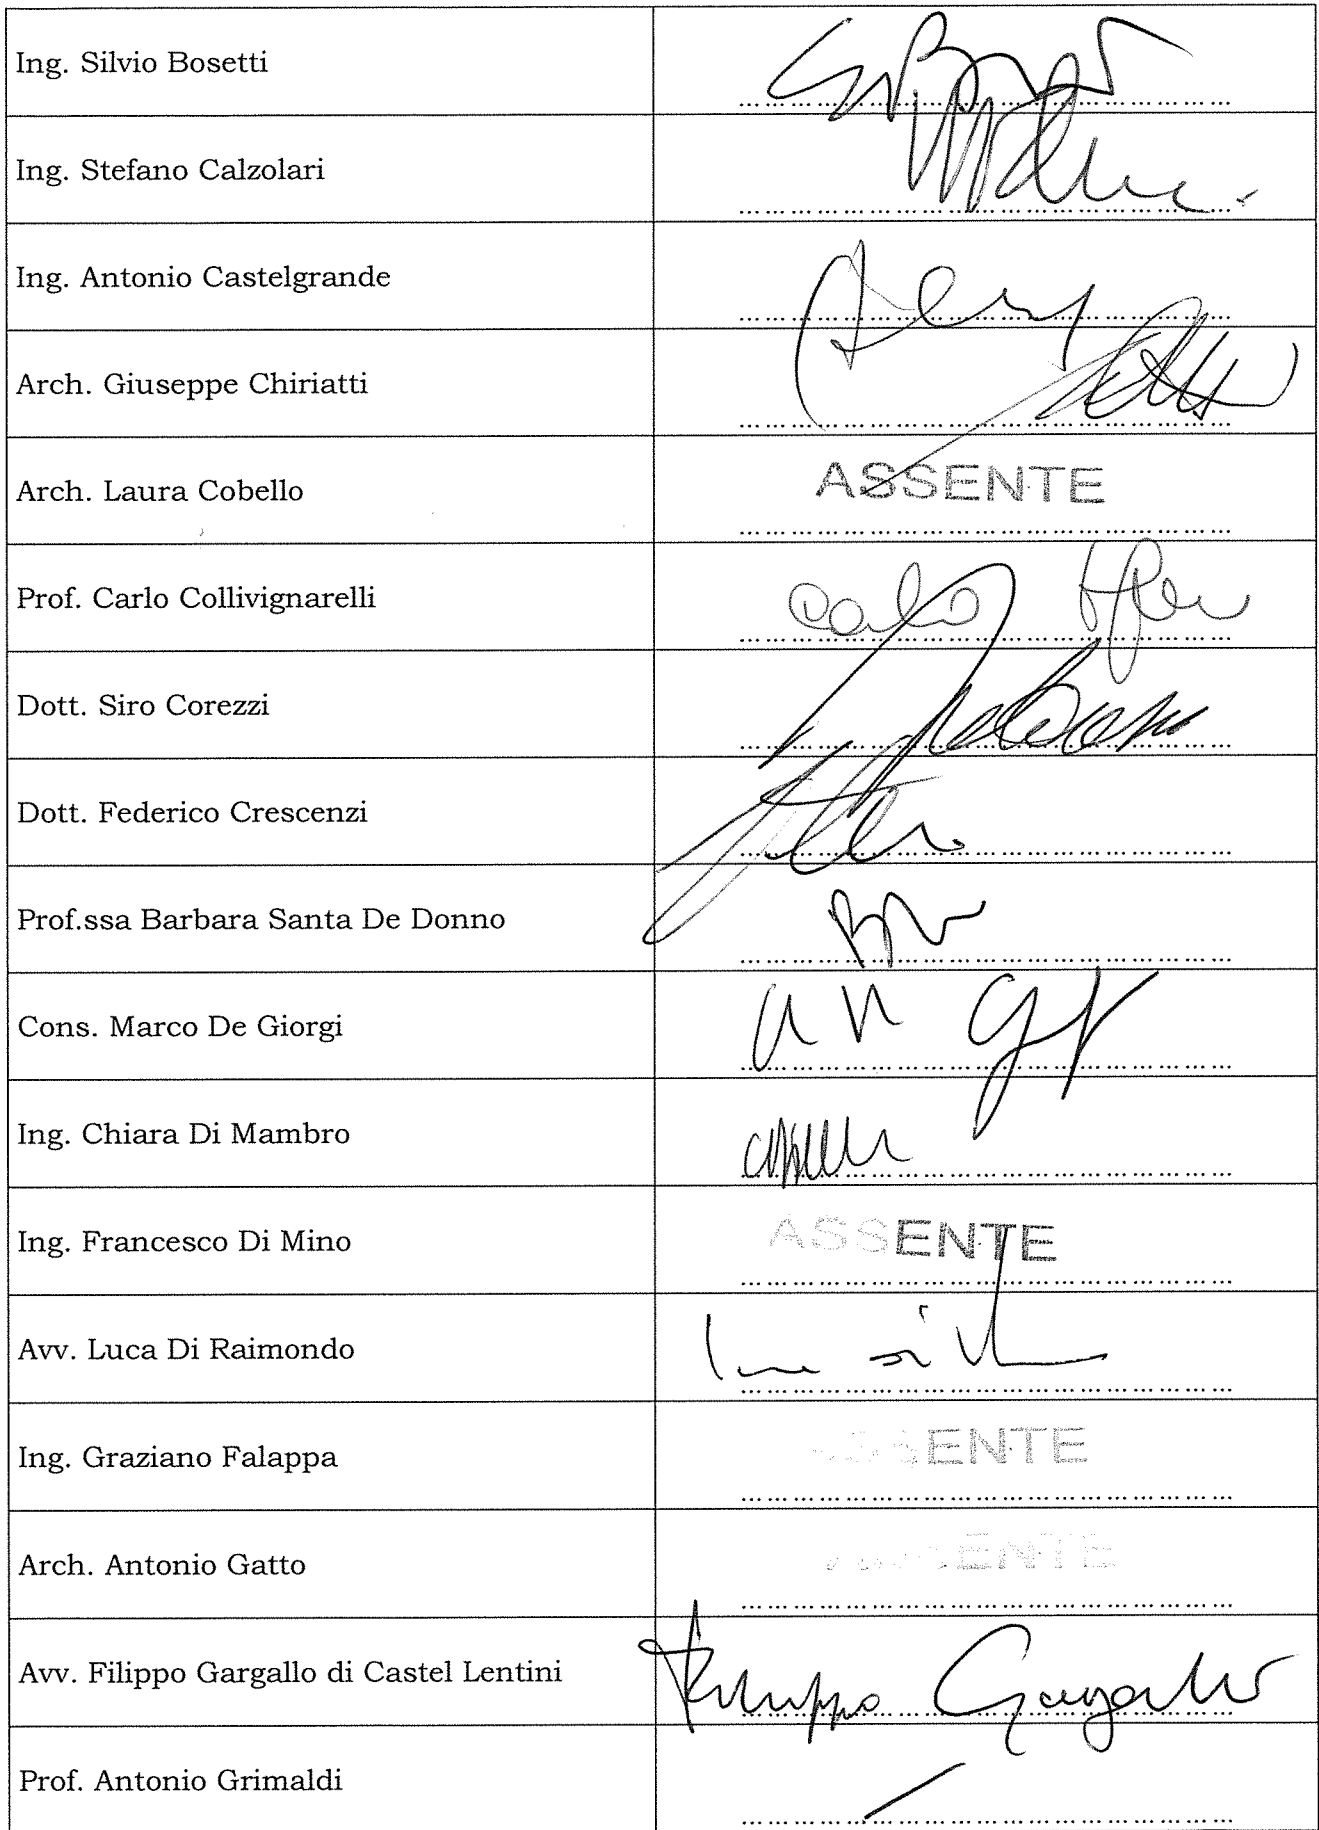 Ing. Silvio Bosetti
Ing. Stefano Calzolari
Ing. Antonio Castelgrande
Arch. Giuseppe Chiriatti
Arch. Laura Cobello ASSENTE
Prof. Carlo Collivignarelli Carlo
Dott. Siro Corezzi
Dott. Federico Crescenzi
Prof.ssa Barbara Santa De Donno
Cons. Marco De Giorgi
Ing. Chiara Di Mambro
Ing. Francesco Di Mino ASSENTE
Avv. Luca Di Raimondo
Ing. Graziano Falappa ASSENTE
Arch. Antonio Gatto ASSENTE
Avv. Filippo Gargallo di Castel Lentini Filippo Gargallo
Prof. Antonio Grimaldi